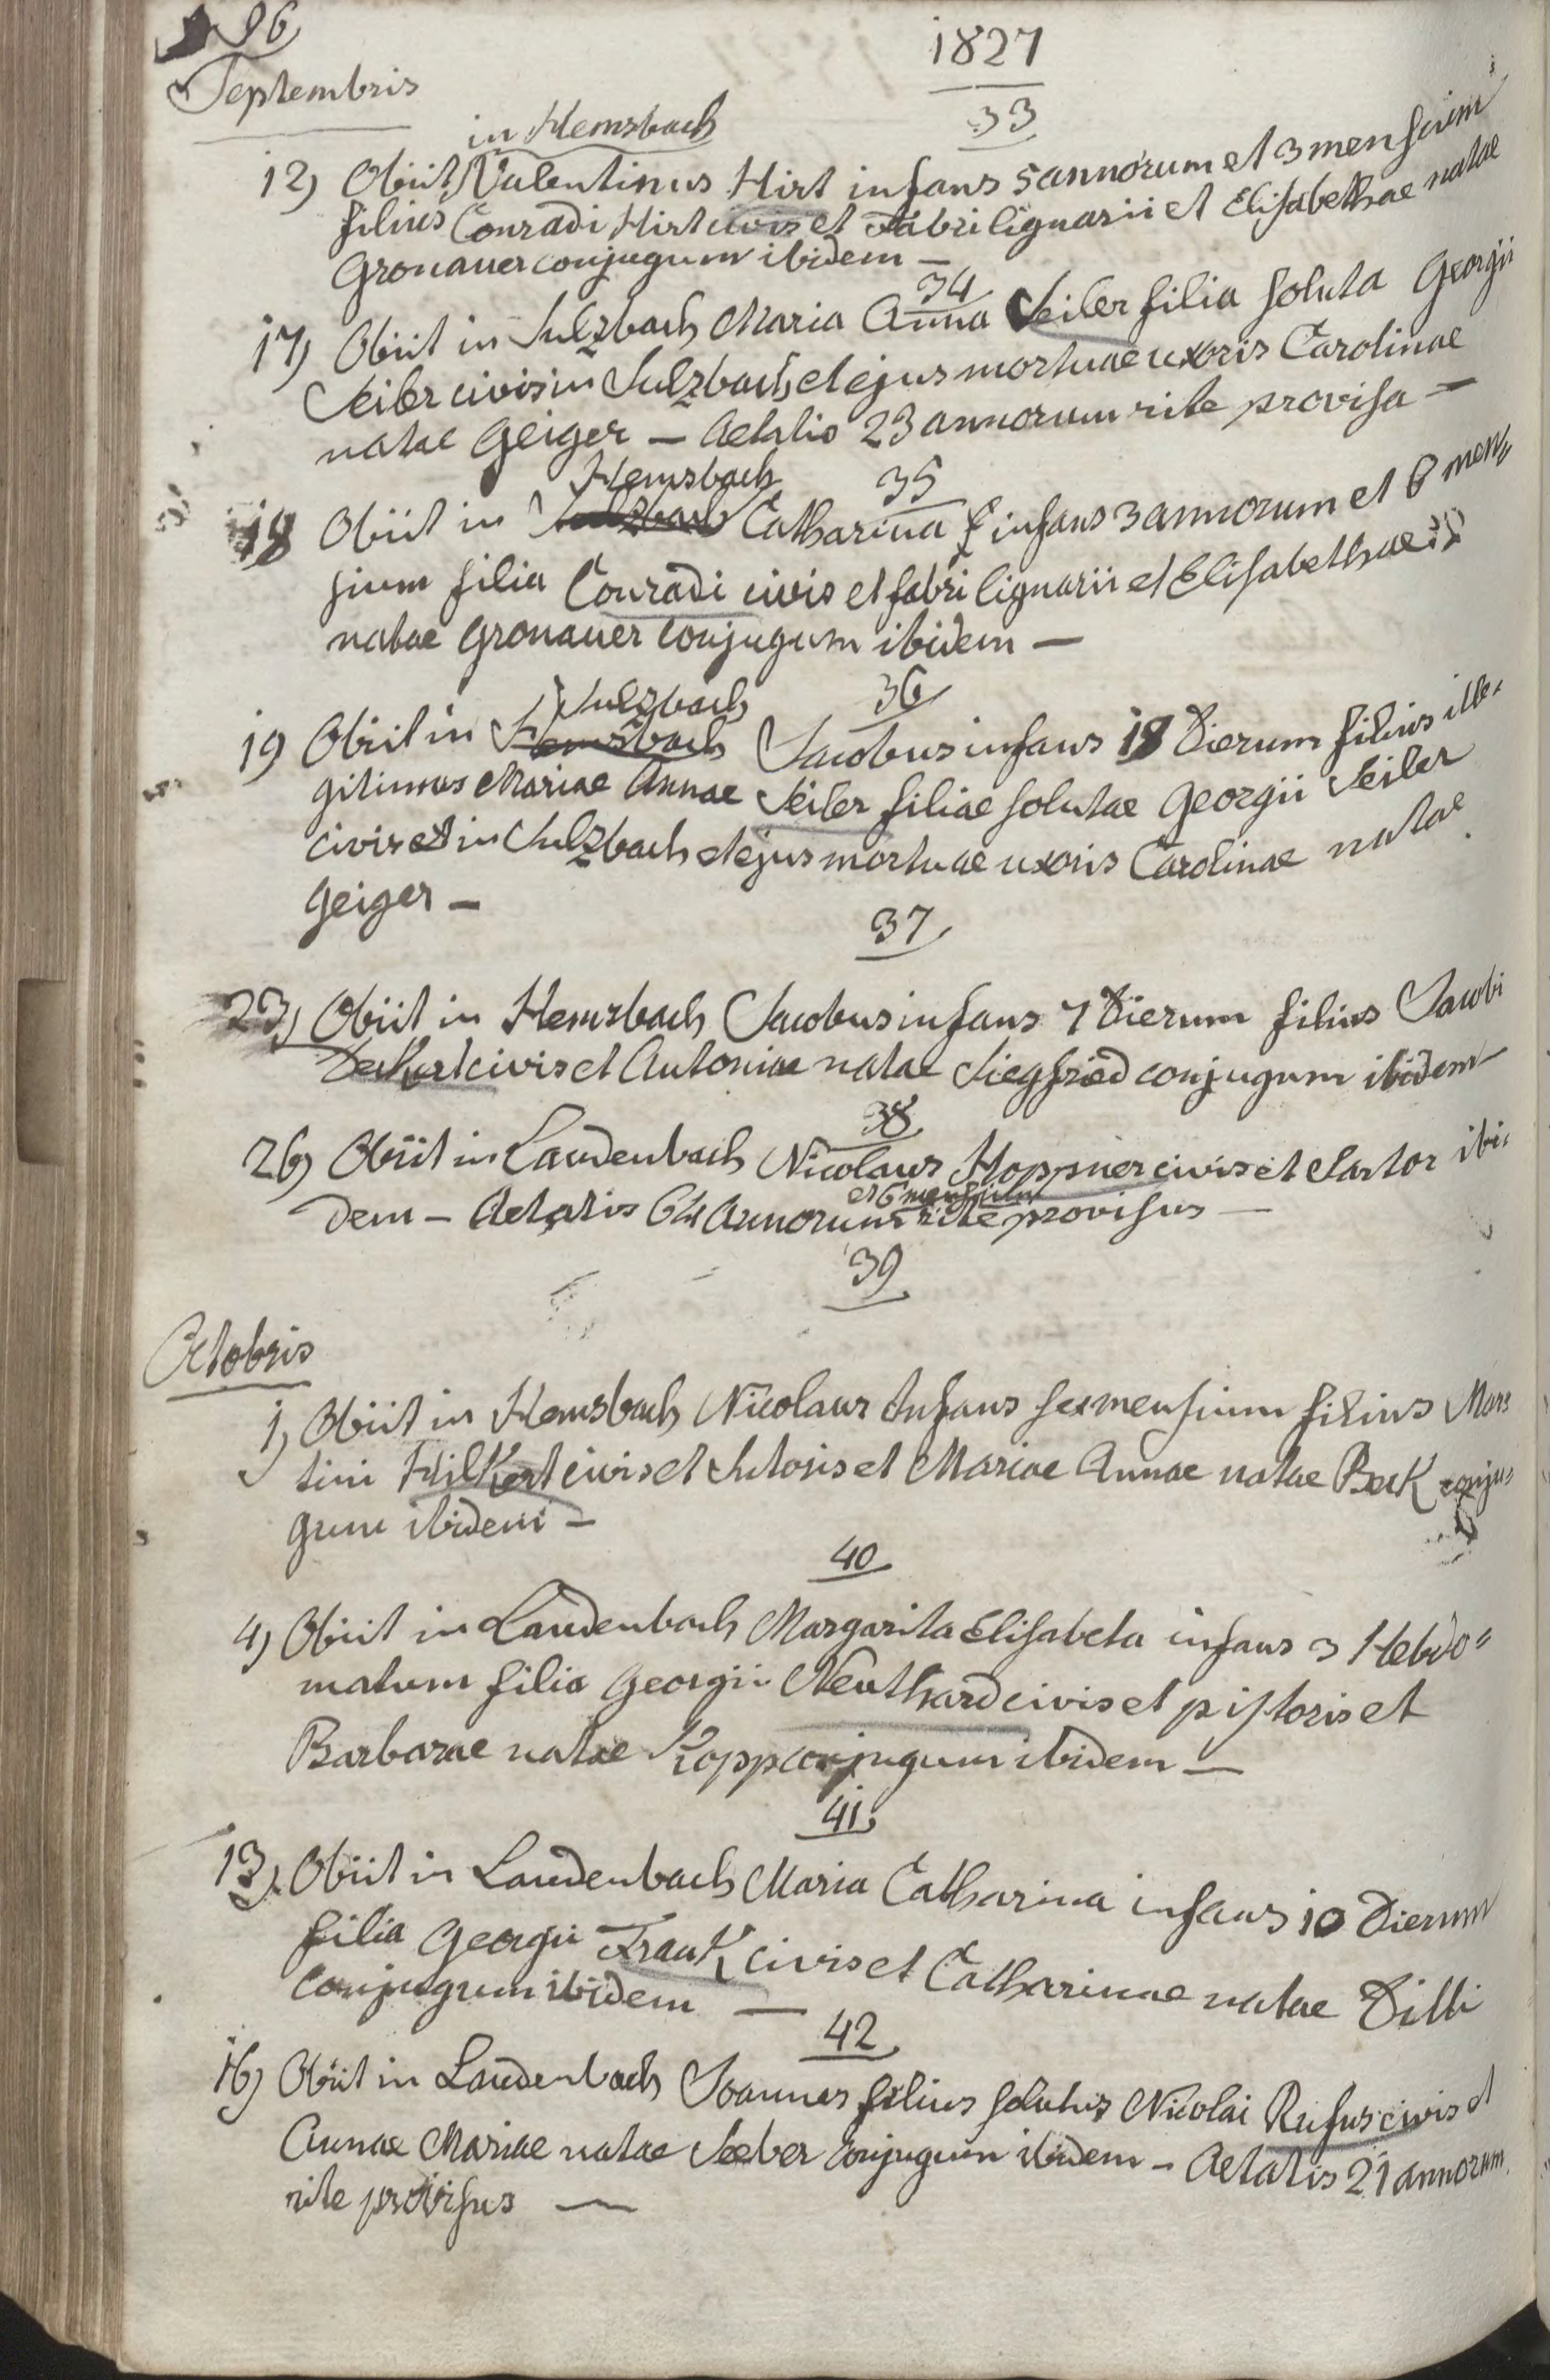 96
1827
Septembris
33
in Hemsbach
12) Obiit Valentinus Hirt infans 5 annorum et 3 mensium
filius Conradi Hirt civis et fabri lignarii et Elisabethae natae
Gronauer conjugum ibidem —
34
17) Obiit in Sulzbach Maria Anna Seiler filia soluta Georgii
Seiler civis in Sulzbach et ejus mortuae uxoris Carolinae
natae Geiger — Aetatis 23 annorum rite provisa —
35
Hemsbach
18 Obiit in Sulzbach Catharina infans 3 annorum et 6 men=
sium filia Conradi civis et fabri lignarii et Elisabethae
natae Gronauer conjugum ibidem —
36
Sulzbach
19 Obiit in Hemsbach Jacobus infans 18 Dierum filius ille=
gitimus Mariae Annae Seiler filiae solutae Georgii Seiler
civis in Sulzbach et ejus mortuae uxoris Carolinae natae
Geiger —
37
23) Obiit in Hemsbach Jacobus infans 7 Dierum filius Jacobi
civis et Antoniae natae Siegfried conjugum ibidem
38
26) Obiit in Laudenbach Nicolaus Hoppner civis et Sartor ibi=
et 6 mensium
dem — Aetatis 64 Annorum rite provisus —
39
Octobris
1) Obiit in Hemsbach Nicolaus Infans sex mensium filius Mar=
tini Hilkert civis et Sutoris et Mariae Annae natae Beck conju=
gum ibidem —
40
4) Obiit in Laudenbach Margarita Elisabeta infans 3 Hebdo=
matum filia Georgii Neuthard civis et pistoris et
Barbarae natae Kopp conjugum ibidem —
41
13) Obiit in Laudenbach Maria Catharina infans 10 Dierum
filia Georgii Frank civis et Catharinae natae Dilli
Conjugum ibidem —
42
16) Obiit in Laudenbach Joannes filius solutus Nicolai Rufus civis et
Annae Mariae natae Seeber conjugum ibidem — Aetatis 21 annorum
rite provisus —